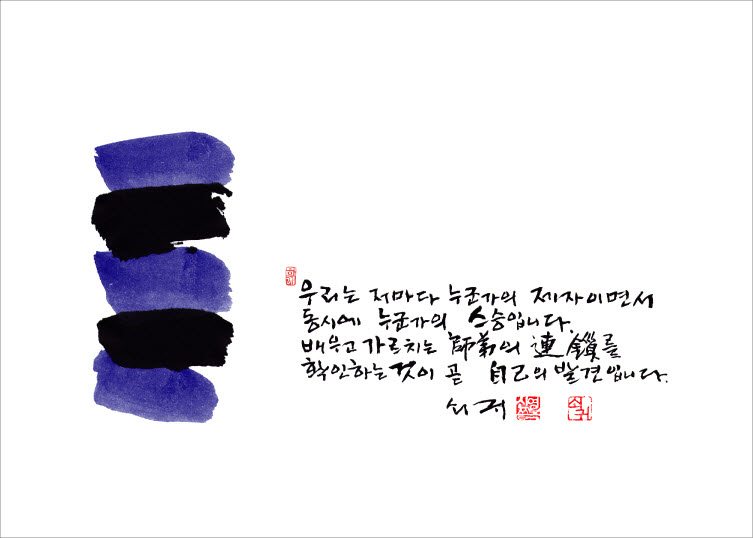 우리는 저마다 누군가의 제자이면서
동시에 누군가의 스승입니다.
배우고 가르치는 師弟의 連鎖를
확인하는것이 곧 自己의 발견입니다.
쇠귀